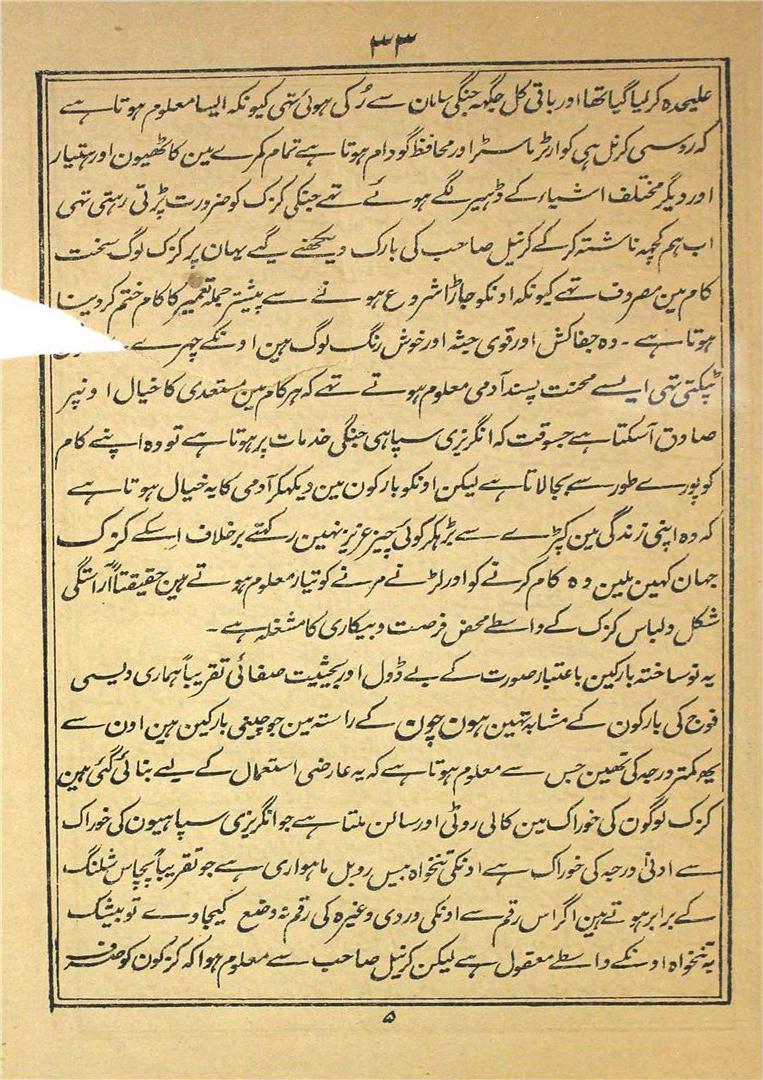 ۳۳
علیحدہ کرلیا گیا تھا اور باقی کل جگہہ جنگی سامان سے رُکی ہوئی تہی کیونکہ ایسا معلوم ہوتا ہے
کہ روسی کرنل ہی کوارٹر ماسٹر اور محافظ گودام ہوتا ہے تمام کمرے مین کاٹھیون اور ہتیار
اور دیگر مختلف اشیاء کے ڈہیر لگے ہوئے تہے جنکی کزک کو ضرورت پڑتی رہتی تہی
اب ہم کچہہ ناشتہ کرکے کرنیل صاحب کی بارک دیکھنے گیے یہان پر کزک لوگ سخت
کام مین مصروف تہے کیونکہ اونکو جاڑا شروع ہونے سے پیشتر جملہ تعمیر کا کام ختم کردینا
ہوتا ہے ۔ وہ جفاکش اور قوی جثہ اور خوش رنگ لوگ ہین اونکے چہرے
ٹپکتی تہی ایسے محنت پسند آدمی معلوم ہوتے تہے کہ ہر کام مین مستعدی کا خیال اونپر
صادق آسکتا ہے جسوقت کہ انگریزی سپاہی جنگی خدمات پر ہوتا ہے تو وہ اپنے کام
کو پورے طور سے بجالاتا ہے لیکن اونکو بارکون مین دیکھکر آدمی کا یہ خیال ہوتا ہے
کہ وہ اپنی زندگی مین کپڑے سے بڑہکر کوئی چیز عزیز نہین رکہتے برخلاف اِسکے کزک
جہان کہین ملین وہ کام کرنے کو اور لڑنے مرنے کو تیار معلوم ہوتے ہین حقیقتاً آراستگی
شکل و لباس کزک کے واسطے محض فرصت و بیکاری کا مشغلہ ہے ۔
یہ نوساختہ بارکین باعتبار صورت کے بے ڈول اور بحیثیت صفائی تقریباً ہماری دیسی
فوج کی بارکون کے مشابہ تہین ہون چون کے راستہ مین جو چیغی بارکین ہین اون سے
یہہ کمتر درجہ کی تھین جس سے معلوم ہوتا ہے کہ یہ عارضی استعمال کے لیے بنائی گئی ہین
کزک لوگون کی خوراک مین کالی روٹی اور سالن ملتا ہے جو انگریزی سپاہیون کی خوراک
سے ادنیٰ درجہ کی خوراک ہے اونکی تنخواہ بیس روبل ماہواری ہے جو تقریباً پچاس شلنگ
کے برابر ہوتے ہین اگر اس رقم سے اونکی وردی وغیرہ کی رقم نہ وضع کیجاوے تو بیشک
یہ تنخواہ اونکے واسطے معقول ہے لیکن کرنیل صاحب سے معلوم ہوا کہ کزکون کو صرف
۵